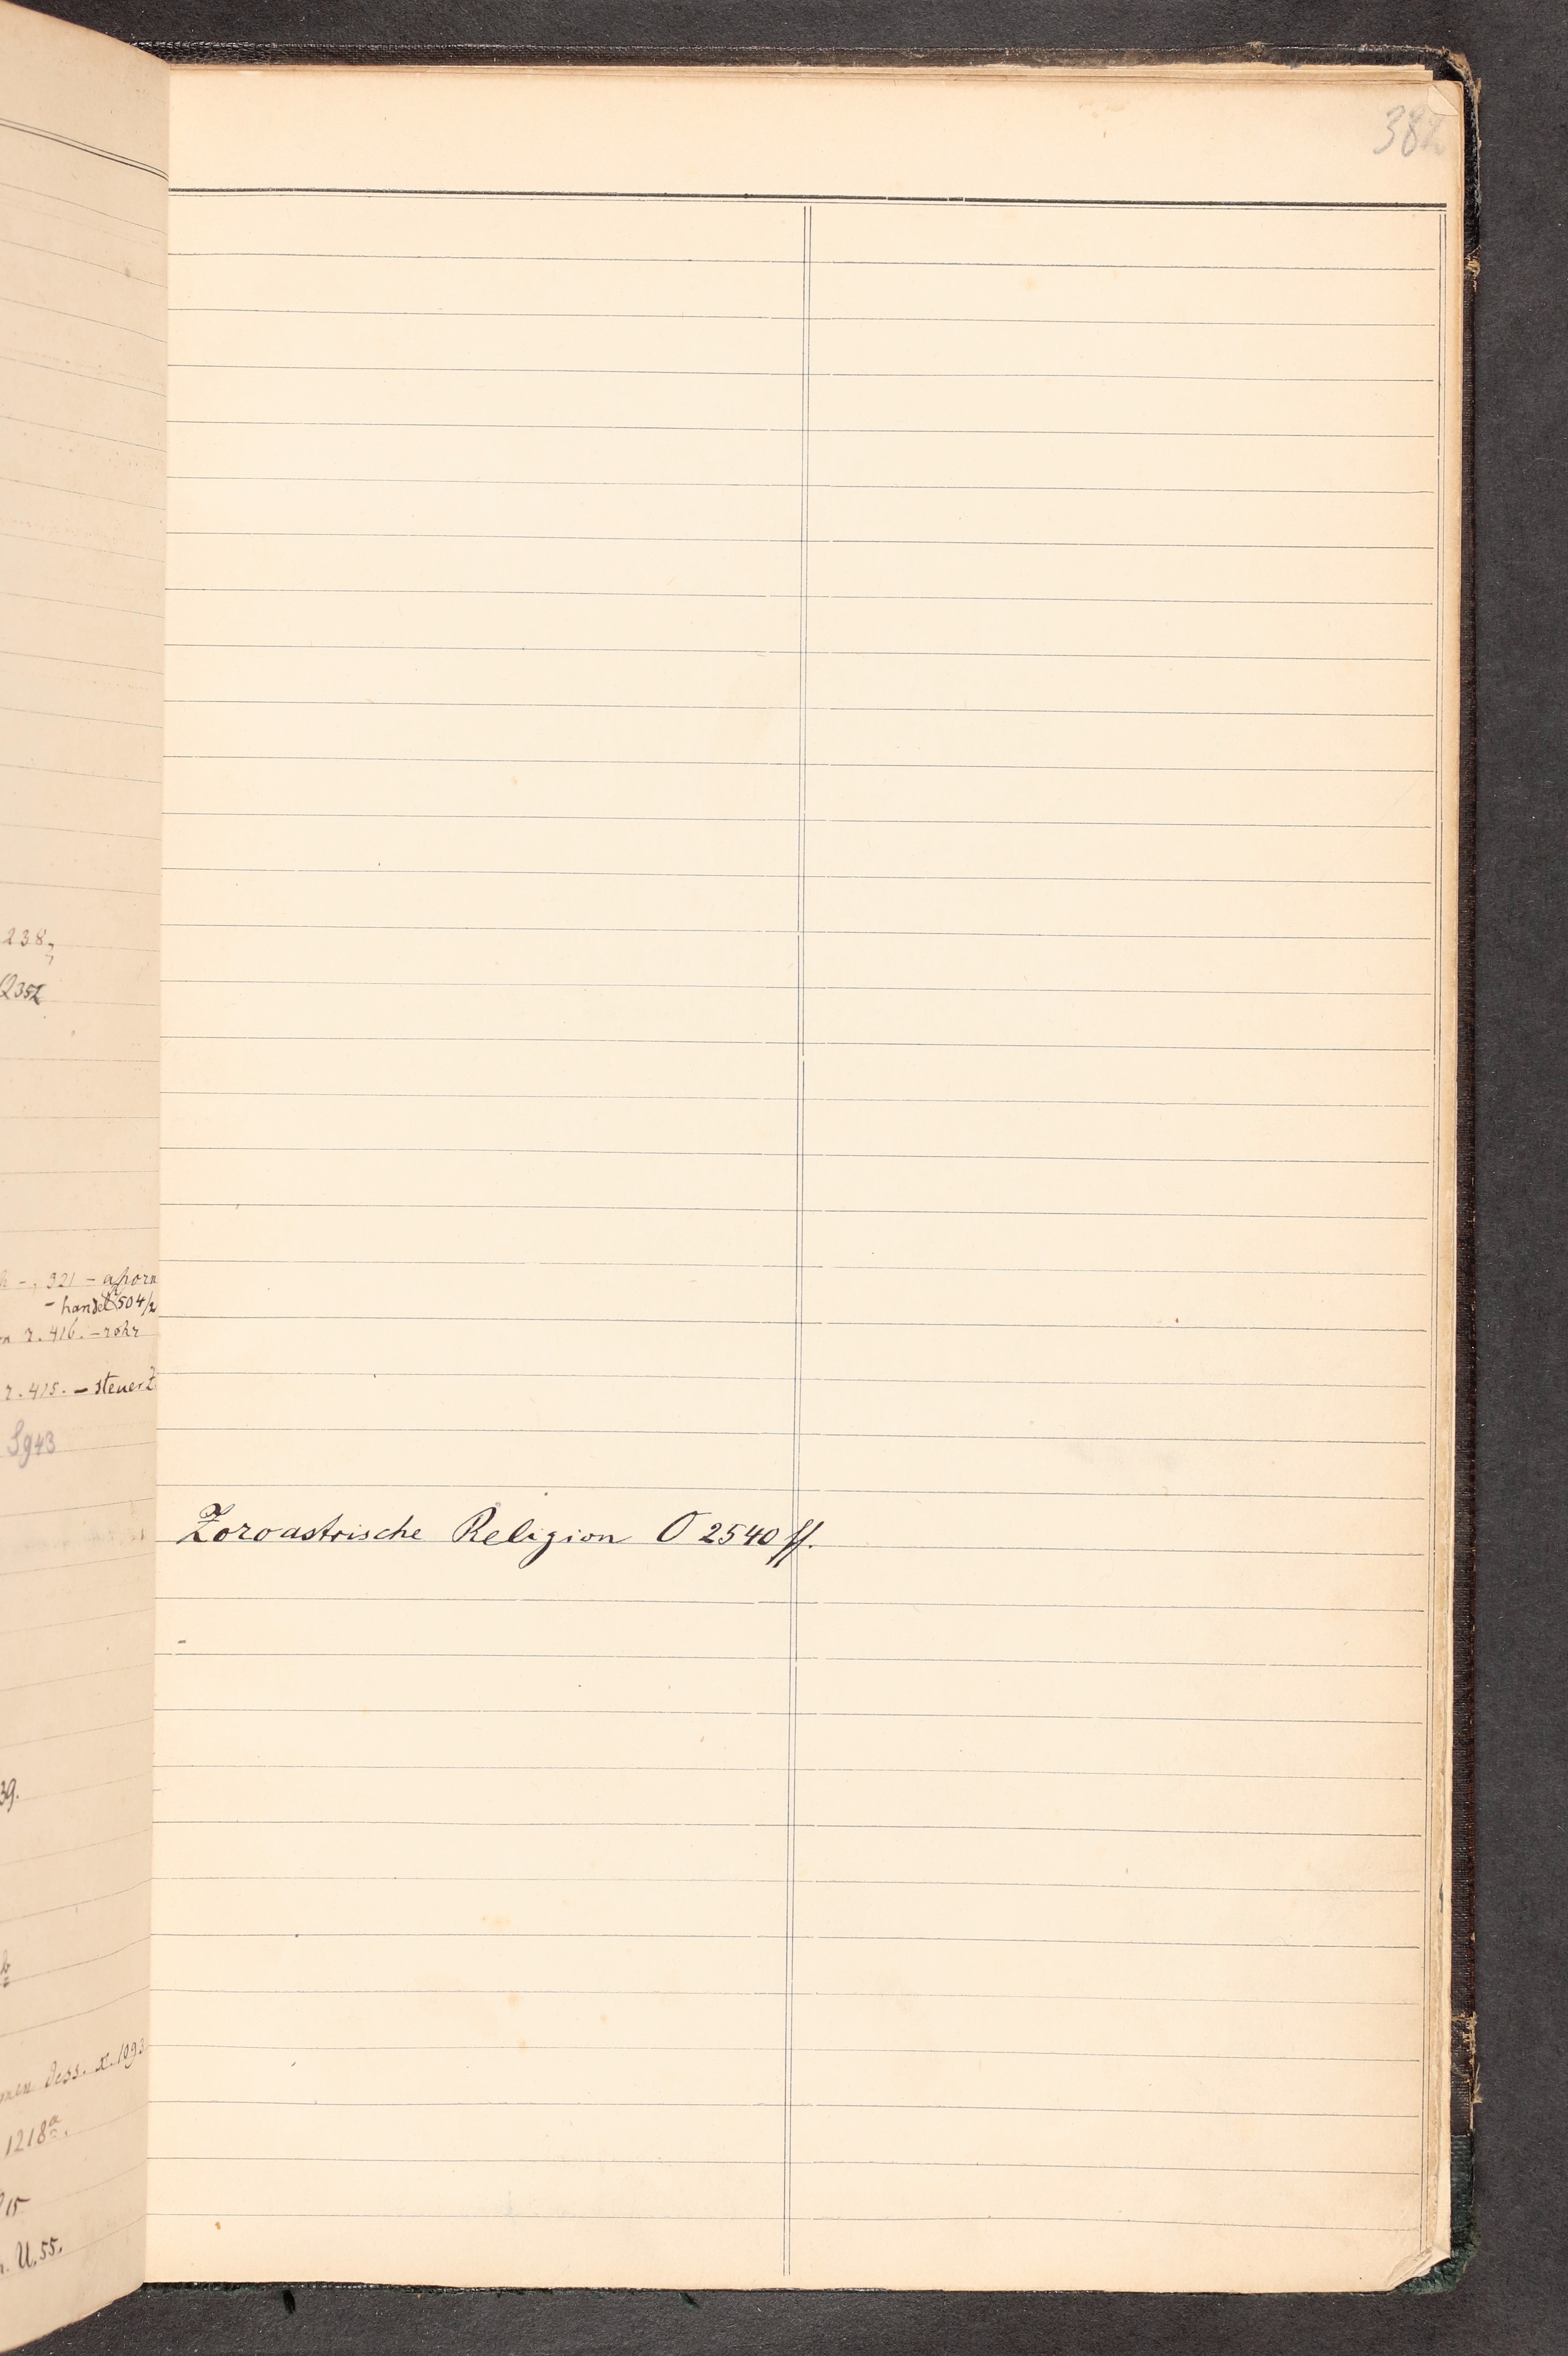 238
Q352
321 – aporn
– handel 504/2
r. 416. – rohr
r. 415. – steuer
Sg43
39.
b
dess. x. 1093
1218a.
15
U. 55.
382
Zoroastrische Religion O 2540 ff.